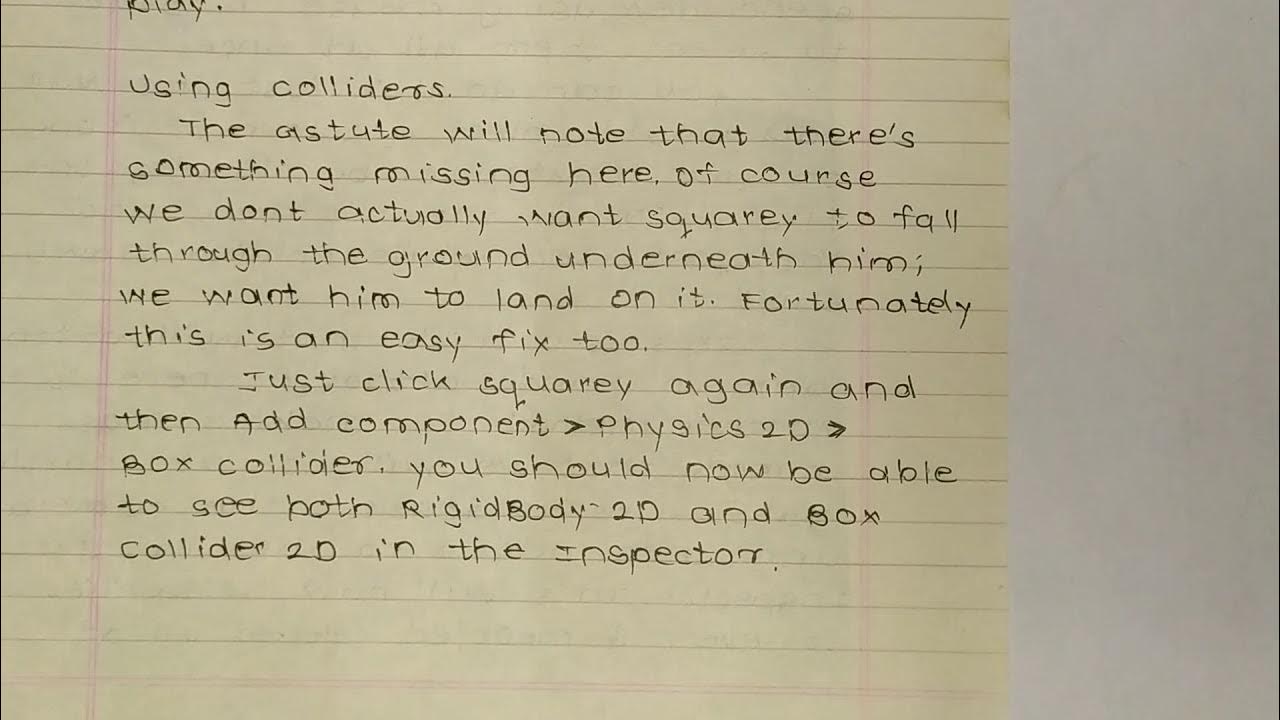 play.
Using colliders.
The astute will note that there's
something missing here. Of course
we dont actually want squarey to fall
through the ground underneath him;
we want him to land on it. Fortunately
this is an easy fix too.
Just click squarey again and
then Add component > Physics 2D >
Box collider. you should now be able
to see both RigidBody 2D and Box
collider 2D in the Inspector.